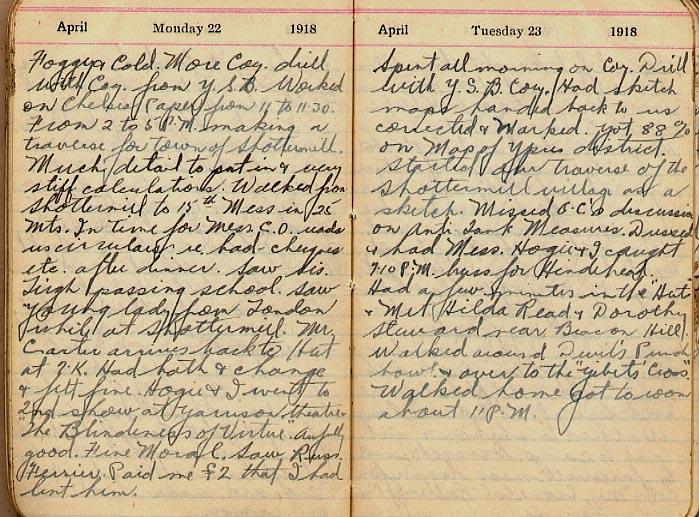 April Monday 22 1918
Foggy & Cold. More Coy. drill
with Coy. from Y.S.B. Worked
on Chelsea Paper from 11 to 11.30.
From 2 to 5 P.M. making a
traverse for town of Shottermill.
Much detail to put in & very
stiff calculations. Walked from
Shottermill to 15th Mess in 25
Mts. In time for Mess. C.O. reads
us circulars re. bad cheques
etc. after dinner. Saw
High passing school. Saw
young lady from London
while at Shottermill. Mr.
Carter arrives back to Hut
at 7.K. Had bath & change
& felt fine. Hogie & I went to
2nd show at Garrison theatre
"The Blindness of Virtue". Awfully
good. Fine Moral. Saw Russ.
Ferrier. Paid me £2 that I had
lent him.
April Tuesday 23 1918
Spent all morning on Coy. Drill
with Y.S.B. Coy. Had sketch
maps handed back to us
corrected & Marked. Got 88%
on Map of Ypres district.
Started our traverse of the
Shottermill village as a
sketch. Missed O.C's discussion
on Anti Tank Measures. Dressed
& had Mess. Hogie & I caught
7.10 P.M. buss for Hindhead.
Had a few minutes in the "Hut"
& Met Hilda Read & Dorothy
Steward near Beacon Hill
Walked around Devil's Punch
bowl & over to the "gibets Cross"
Walked home got to room
about 11 P.M.